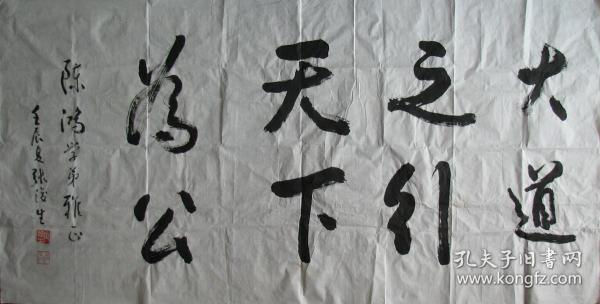 大道
之引
天下
為公
陈鸿学弟雅正
壬辰夏张
孔夫子旧书网
www.kongfz.com